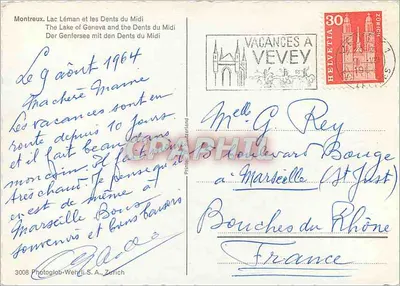 Montreux. Lac Léman et les Dents du Midi
The Lake of Geneva and the Dents du Midi
Der Genfersee mit den Dents du Midi
Le 9 août 1964
Ma chère Mamie
Les vacances sont en
route depuis 10 jours
et il fait beau dans
mon coin. Il fait
très chaud. Je pense qu'il
en est de même à
Marseille Bons
souvenirs et bons baisers
3008 Photoglob-Wehrli S.A., Zürich
VACANCES A
VEVEY
HELVETIA 30
Melle G Rey
Boulevard Bouge
à Marseille (St Just)
Bouches du Rhône
France
CPAPHIL